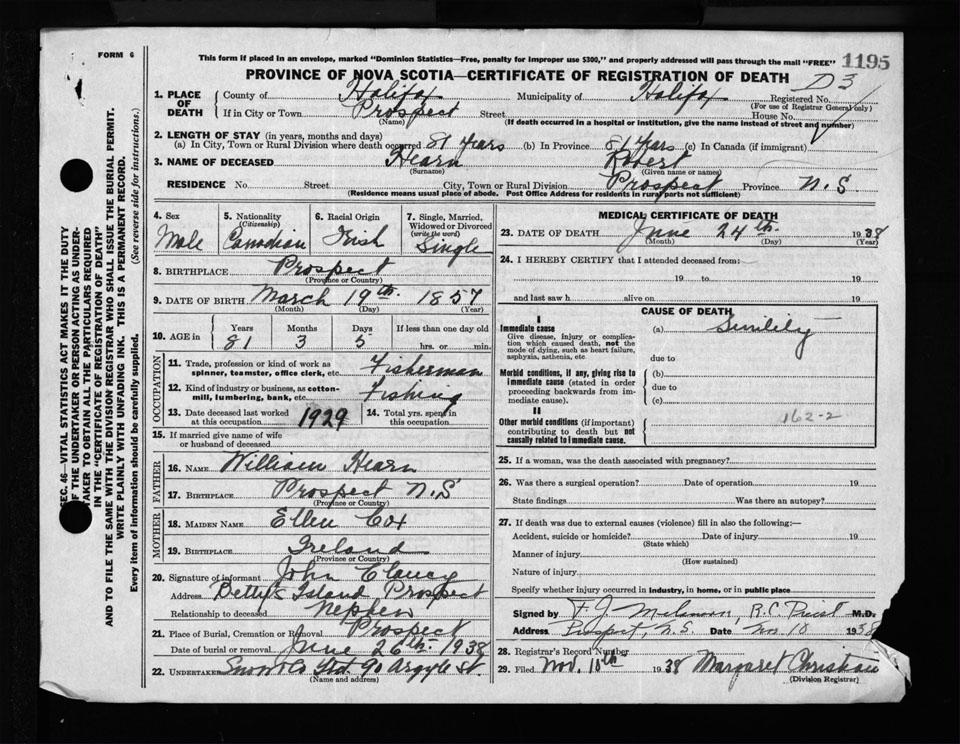 FORM 6
This form if placed in an envelope, marked "Dominion Statistics—Free, penalty for improper use $300," and properly addressed will pass through the mail "FREE"
1195
PROVINCE OF NOVA SCOTIA—CERTIFICATE OF REGISTRATION OF DEATH
D3
1. PLACE OF DEATH County of Halifax Municipality of Halifax Registered No.
(For use of Registrar General only)
If in City or Town Prospect Street House No.
(Name) (If death occurred in a hospital or institution, give the name instead of street and number)
2. LENGTH OF STAY (in years, months and days)
(a) In City, Town or Rural Division where death occurred 81 years (b) In Province 81 years (c) In Canada (if immigrant)
3. NAME OF DECEASED Hearn Robert
(Surname) (Given name or names)
RESIDENCE No. Street City, Town or Rural Division Prospect Province N.S
(Residence means usual place of abode. Post Office Address for residents in rural parts not sufficient)
4. Sex Male
5. Nationality (Citizenship) Canadian
6. Racial Origin Irish
7. Single, Married, Widowed or Divorced (write the word) Single
8. BIRTHPLACE Prospect
(Province or Country)
9. DATE OF BIRTH March 19th. 1857
(Month) (Day) (Year)
10. AGE in Years Months Days If less than one day old
81 3 5 hrs. or min.
OCCUPATION
11. Trade, profession or kind of work as spinner, teamster, office clerk, etc. Fisherman
12. Kind of industry or business, as cotton-mill, lumbering, bank, etc. Fishing
13. Date deceased last worked at this occupation 1929
14. Total yrs. spent in this occupation.
15. If married give name of wife or husband of deceased
FATHER
16. NAME William Hearn
17. BIRTHPLACE Prospect N.S
(Province or Country)
MOTHER
18. MAIDEN NAME Ellen Cox
19. BIRTHPLACE Ireland
(Province or Country)
20. Signature of informant John Clancy
Address Betty's Island Prospect
Relationship to deceased Nephew
21. Place of Burial, Cremation or Removal Prospect
Date of burial or removal June 26th. 1938
22. UNDERTAKER Snow Co Ltd 90 Argyle St.
(Name and address)
MEDICAL CERTIFICATE OF DEATH
23. DATE OF DEATH June 24th. 1938
(Month) (Day) (Year)
24. I HEREBY CERTIFY that I attended deceased from:
19 to 19
and last saw h alive on 19
CAUSE OF DEATH
I
Immediate cause
Give disease, injury or complication which caused death, not the mode of dying, such as heart failure, asphyxia, asthenia, etc.
(a) Senility
due to
Morbid conditions, if any, giving rise to immediate cause (stated in order proceeding backwards from immediate cause).
(b)
due to
(c)
II
Other morbid conditions (if important) contributing to death but not causally related to immediate cause.
162-2
25. If a woman, was the death associated with pregnancy?
26. Was there a surgical operation? Date of operation 19
State findings Was there an autopsy?
27. If death was due to external causes (violence) fill in also the following:—
Accident, suicide or homicide? Date of injury 19
(State which)
Manner of injury
(How sustained)
Nature of injury
Specify whether injury occurred in industry, in home, or in public place
Signed by F. J. R.C. Priest M.D.
Address Prospect, N.S. Date Nov 10 1938
28. Registrar's Record Number
29. Filed Nov. 10th 1938 Margaret Christian
(Division Registrar)
SEC. 46—VITAL STATISTICS ACT MAKES IT THE DUTY
OF THE UNDERTAKER OR PERSON ACTING AS UNDER-
TAKER TO OBTAIN ALL THE PARTICULARS REQUIRED
IN THE "CERTIFICATE OF REGISTRATION OF DEATH"
AND TO FILE THE SAME WITH THE DIVISION REGISTRAR WHO SHALL ISSUE THE BURIAL PERMIT.
WRITE PLAINLY WITH UNFADING INK. THIS IS A PERMANENT RECORD.
Every item of information should be carefully supplied. (See reverse side for instructions.)